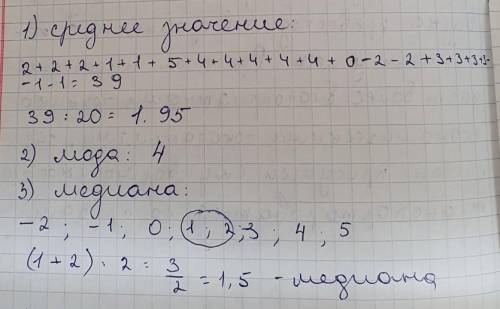 1) среднее значение:
2+2+2+1+1+5+4+4+4+4+4+0-2-2+3+3+3+3-
-1-1=39
39:20=1.95
2) мода: 4
3) медиана:
-2; -1; 0; 1; 2; 3; 4; 5
(1+2) : 2 = 3/2 = 1,5 - медиана